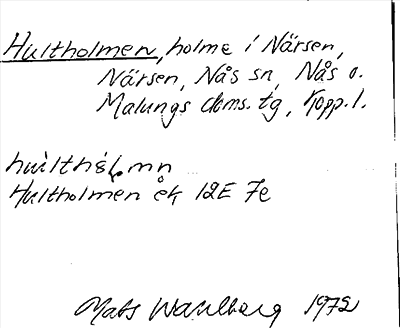 Hultholmen, holme i Närsen,
Närsen, Nås sn, Nås o.
Malungs doms. tg, Kopp. l.
Hultholmen ek 12E 7e
Mats Wahlberg 1972